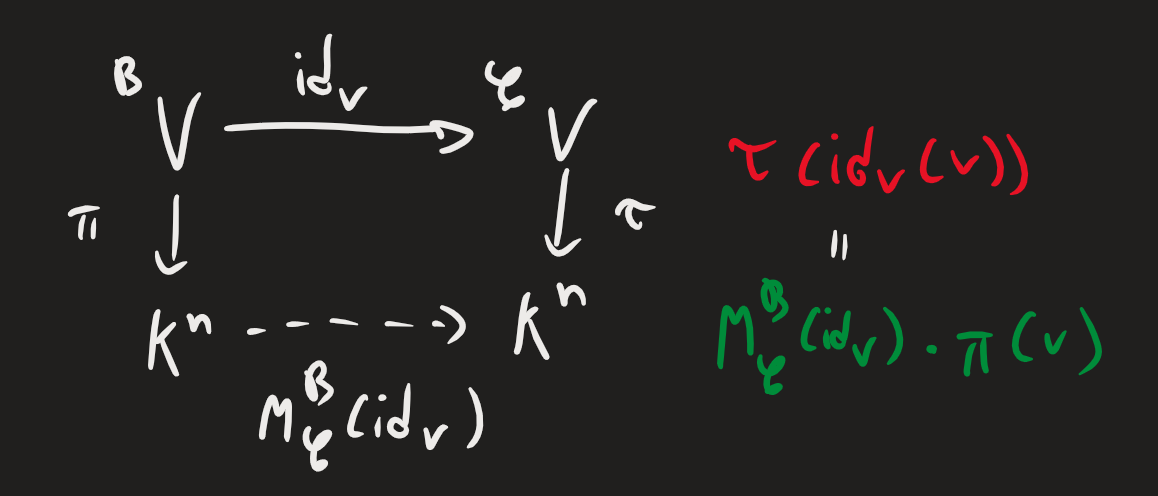 B V id_V 𝒞 V
π τ
K^n K^n
M^B_𝒞(id_V)
τ(id_V(v))
=
M^B_𝒞(id_V) · π(v)